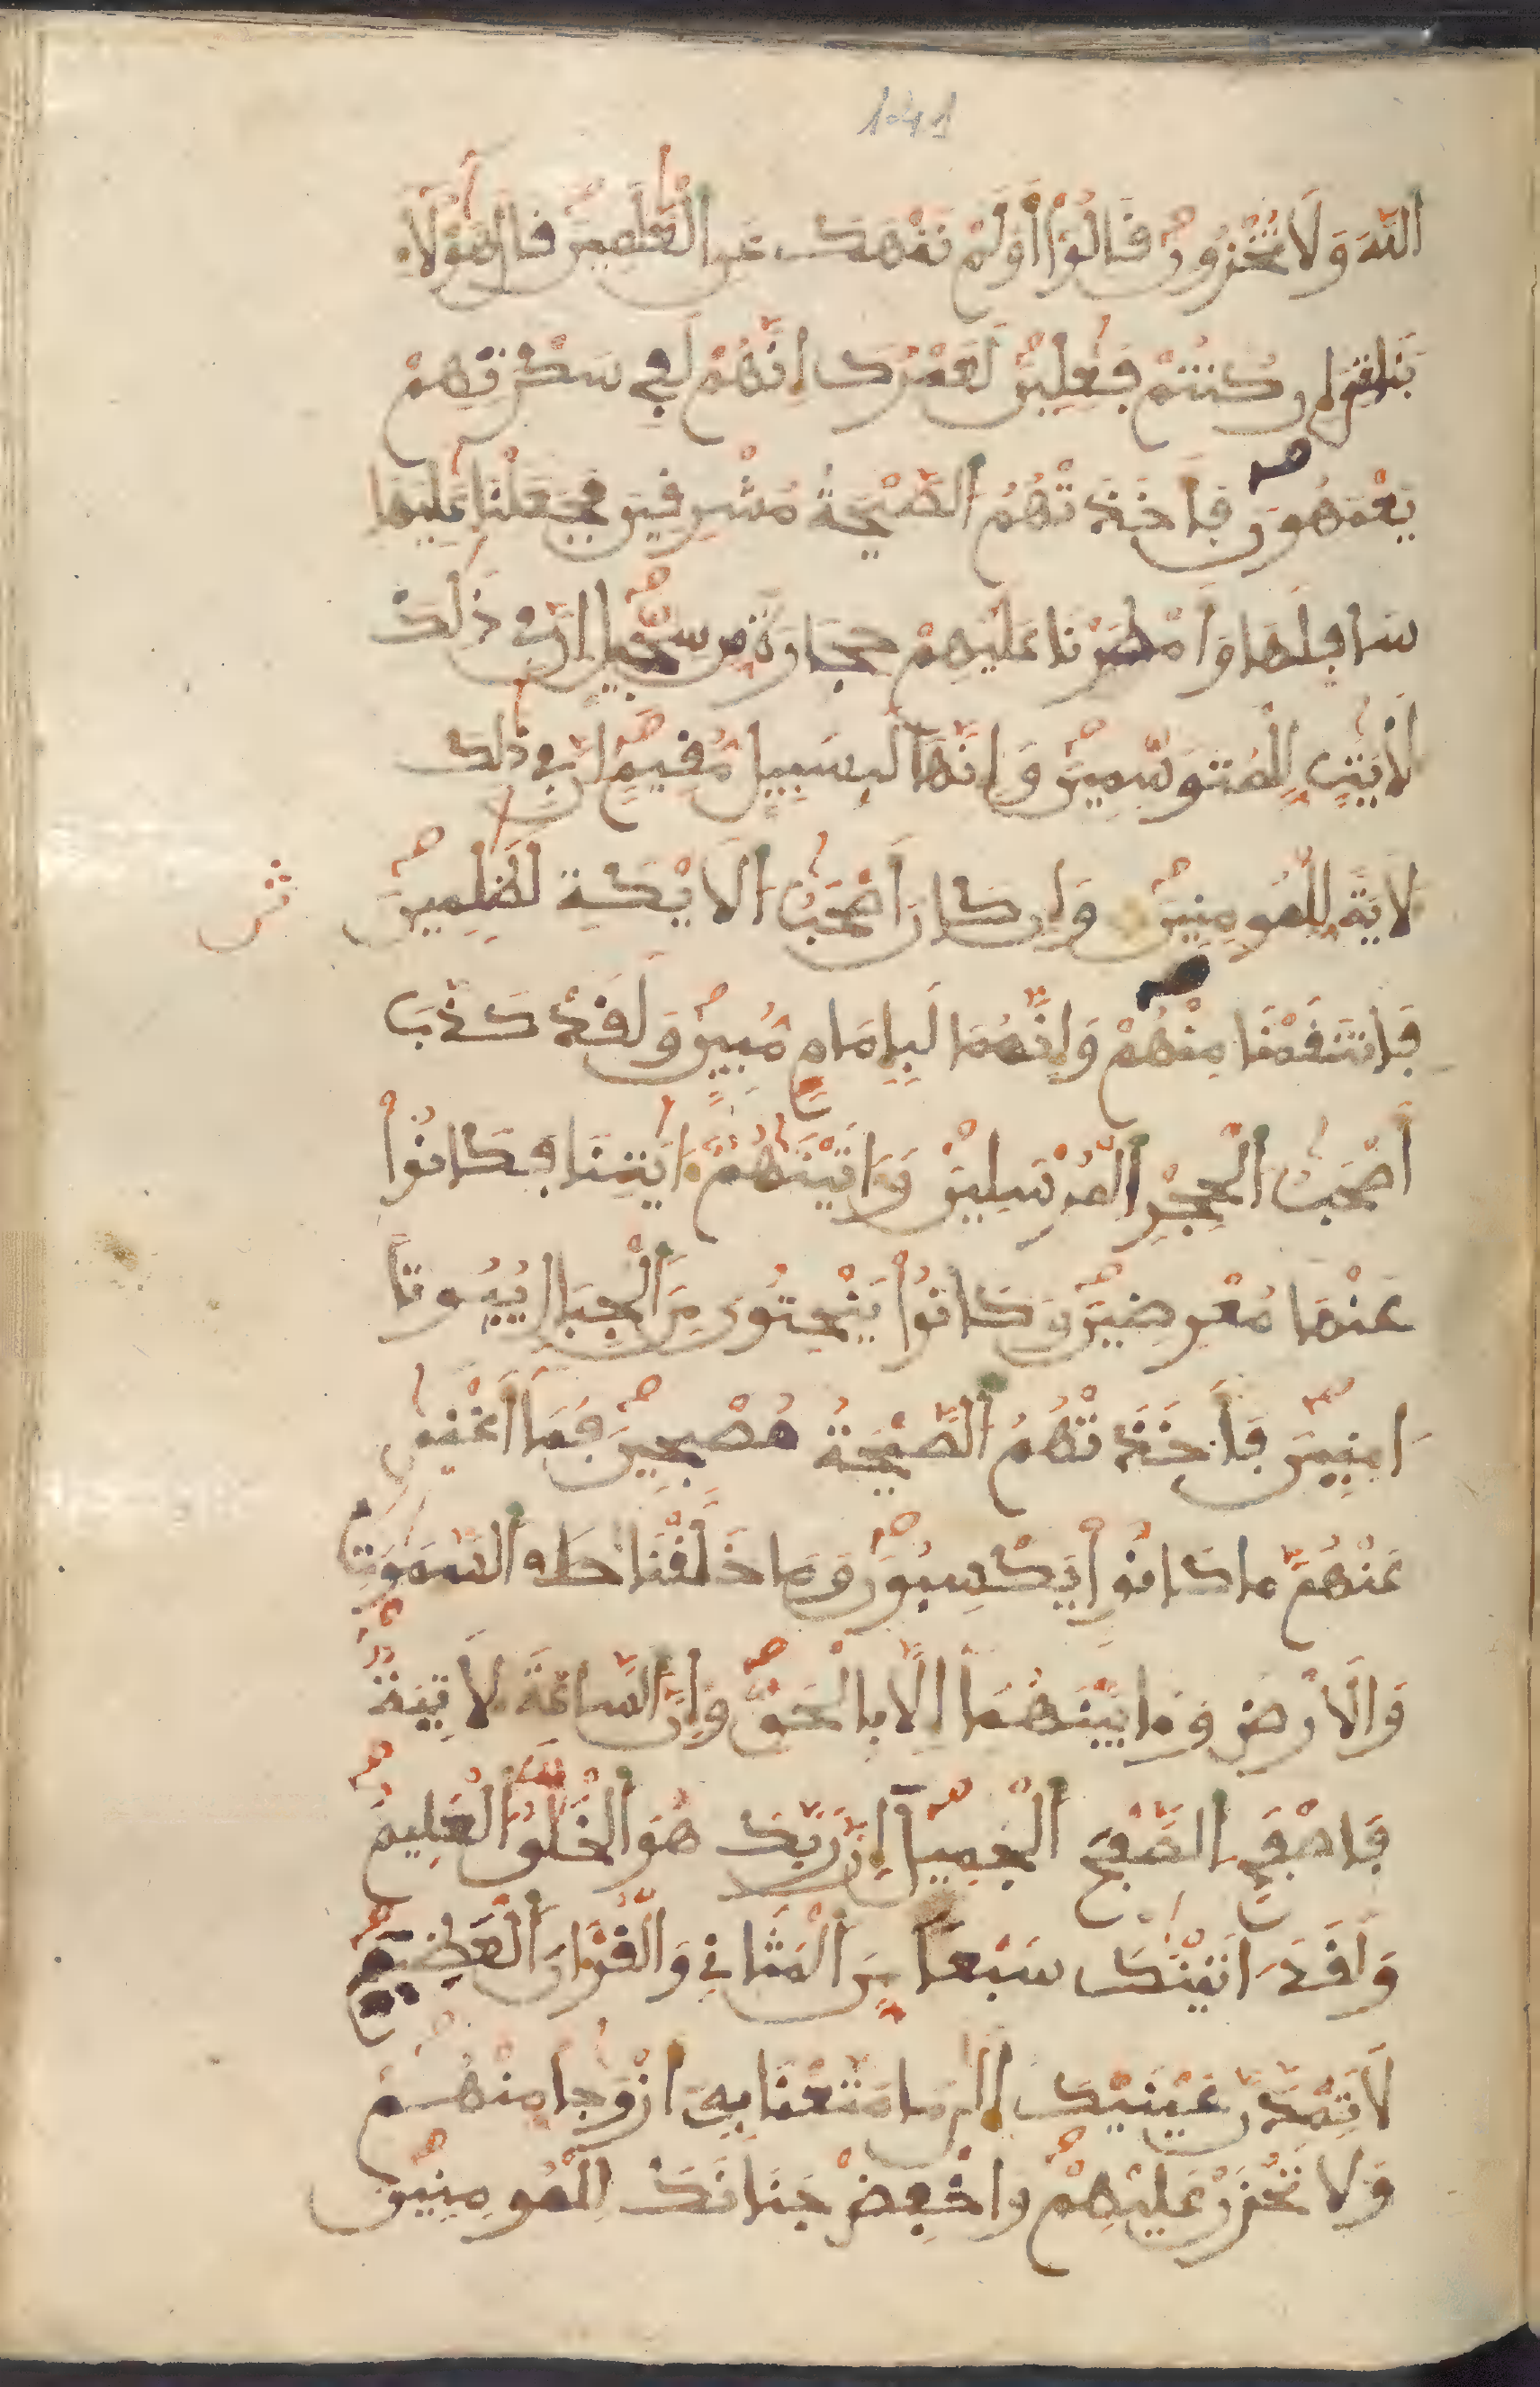 141
اللَّهَ وَلَا تُخْزُونِ قَالُوٓا أَوَلَمْ نَنْهَكَ عَنِ الْعَٰلَمِينَ قَالَ هَٰٓؤُلَآءِ
بَنَاتِيَ إِن كُنتُمْ فَٰعِلِينَ لَعَمْرُكَ إِنَّهُمْ لَفِي سَكْرَتِهِمْ
يَعْمَهُونَ فَأَخَذَتْهُمُ الصَّيْحَةُ مُشْرِقِينَ فَجَعَلْنَا عَٰلِيَهَا
سَافِلَهَا وَأَمْطَرْنَا عَلَيْهِمْ حِجَارَةً مِّن سِجِّيلٍ إِنَّ فِي ذَٰلِكَ
لَأَيَٰتٍ لِّلْمُتَوَسِّمِينَ وَإِنَّهَا لَبِسَبِيلٍ مُّقِيمٍ إِنَّ فِي ذَٰلِكَ
لَأَيَةً لِّلْمُومِنِينَ وَإِن كَانَ أَصْحَٰبُ الْأَيْكَةِ لَظَٰلِمِينَ
ثمن
فَانتَقَمْنَا مِنْهُمْ وَإِنَّهُمَا لَبِإِمَامٍ مُّبِينٍ وَلَقَدْ كَذَّبَ
أَصْحَٰبُ الْحِجْرِ الْمُرْسَلِينَ وَءَاتَيْنَٰهُمُ ءَايَٰتِنَا فَكَانُوا
عَنْهَا مُعْرِضِينَ وَكَانُوا يَنْحِتُونَ مِنَ الْجِبَالِ بُيُوتًا
ءَامِنِينَ فَأَخَذَتْهُمُ الصَّيْحَةُ مُصْبِحِينَ فَمَا أَغْنَىٰ
عَنْهُم مَّا كَانُوا يَكْسِبُونَ وَمَا خَلَقْنَا السَّمَٰوَٰتِ
وَالْأَرْضَ وَمَا بَيْنَهُمَا إِلَّا بِالْحَقِّ وَإِنَّ السَّاعَةَ لَأَتِيَةٌ
فَاصْفَحِ الصَّفْحَ الْجَمِيلَ إِنَّ رَبَّكَ هُوَ الْخَلَّٰقُ الْعَلِيمُ
وَلَقَدَ ءَاتَيْنَٰكَ سَبْعًا مِّنَ الْمَثَانِي وَالْقُرْءَانَ الْعَظِيمَ
لَا تَمُدَّنَّ عَيْنَيْكَ إِلَىٰ مَا مَتَّعْنَا بِهِ أَزْوَٰجًا مِّنْهُمْ
وَلَا تَحْزَنْ عَلَيْهِمْ وَاخْفِضْ جَنَاحَكَ لِلْمُومِنِينَ